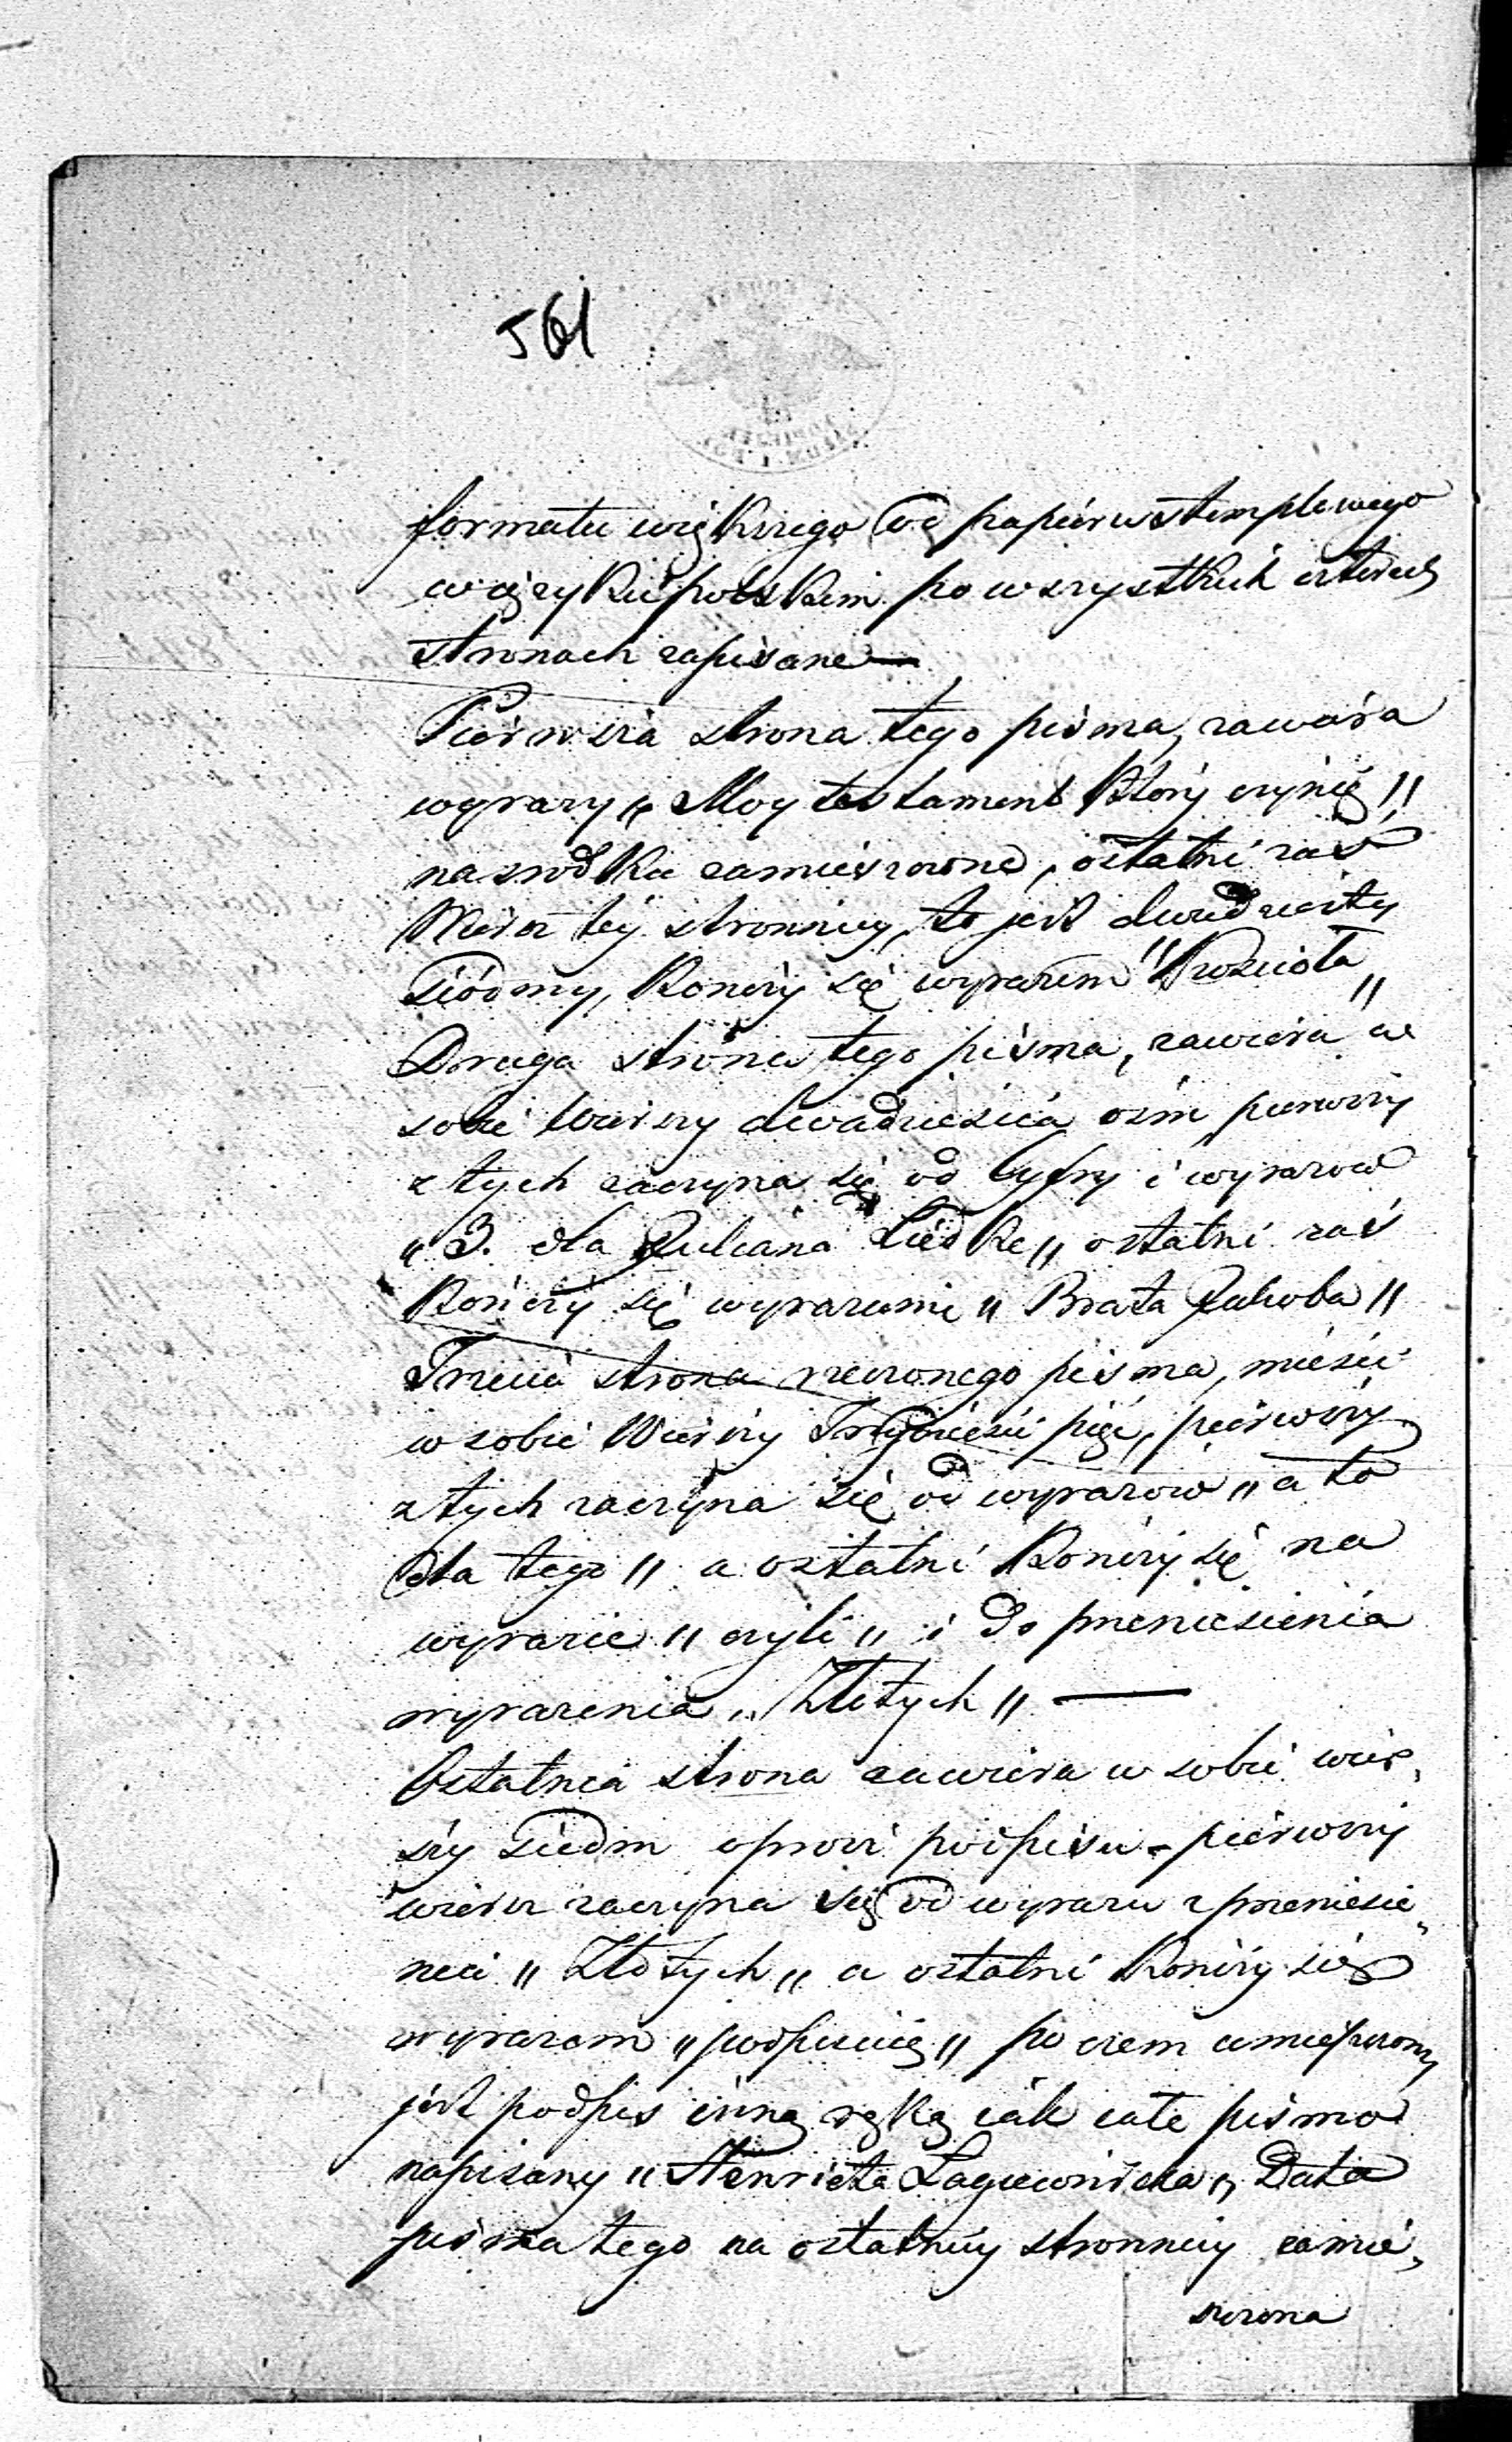 561
formatu większego od papieru stemplowego
w języku polskim po wszystkich czterech
stronach zapisane —
Pierwsza strona tego pisma, zawiera
wyrazy „ Moy testament który czynię "
na środku zamieszczone, ostatni zaś
Wiersz téy stronnicy, to jest dwudziesty
siódmy, kończy się wyrazem " Kościoła "
Druga strona tego pisma, zawiera w
sobie wierszy dwadzieścia ośm pierwszy
z tych zaczyna się od Cyfry i wyrazów
„ 3. dla Juliana Liedke „ ostatni zaś
kończy się wyrazami „ Brata Jakoba "
Trzecia strona rzeczonego pisma, mieści
w sobie Wierszy Trzydzieści pięć, pierwszy
z tych zaczyna się od wyrazów „ a to
dla tego " a ostatni kończy się na
wyrazie „ czyli „ i do przeniesienia
wyrażenia „ Złotych " —
Ostatnia strona zawiera w sobie wier„
szy siedm oprócz podpisu - pierwszy
wiersz zaczyna się od wyrazu z przeniesie„
nia „ Złotych „ a ostatni kończy się
wyrazem „ podpisuię " po czem umieszczony
jest podpis inną ręką iak całe pismo
napisany „ Henrieta Łagiewnicka „ Data
pisma tego na ostatniéy stronnicy zamie„
szczona